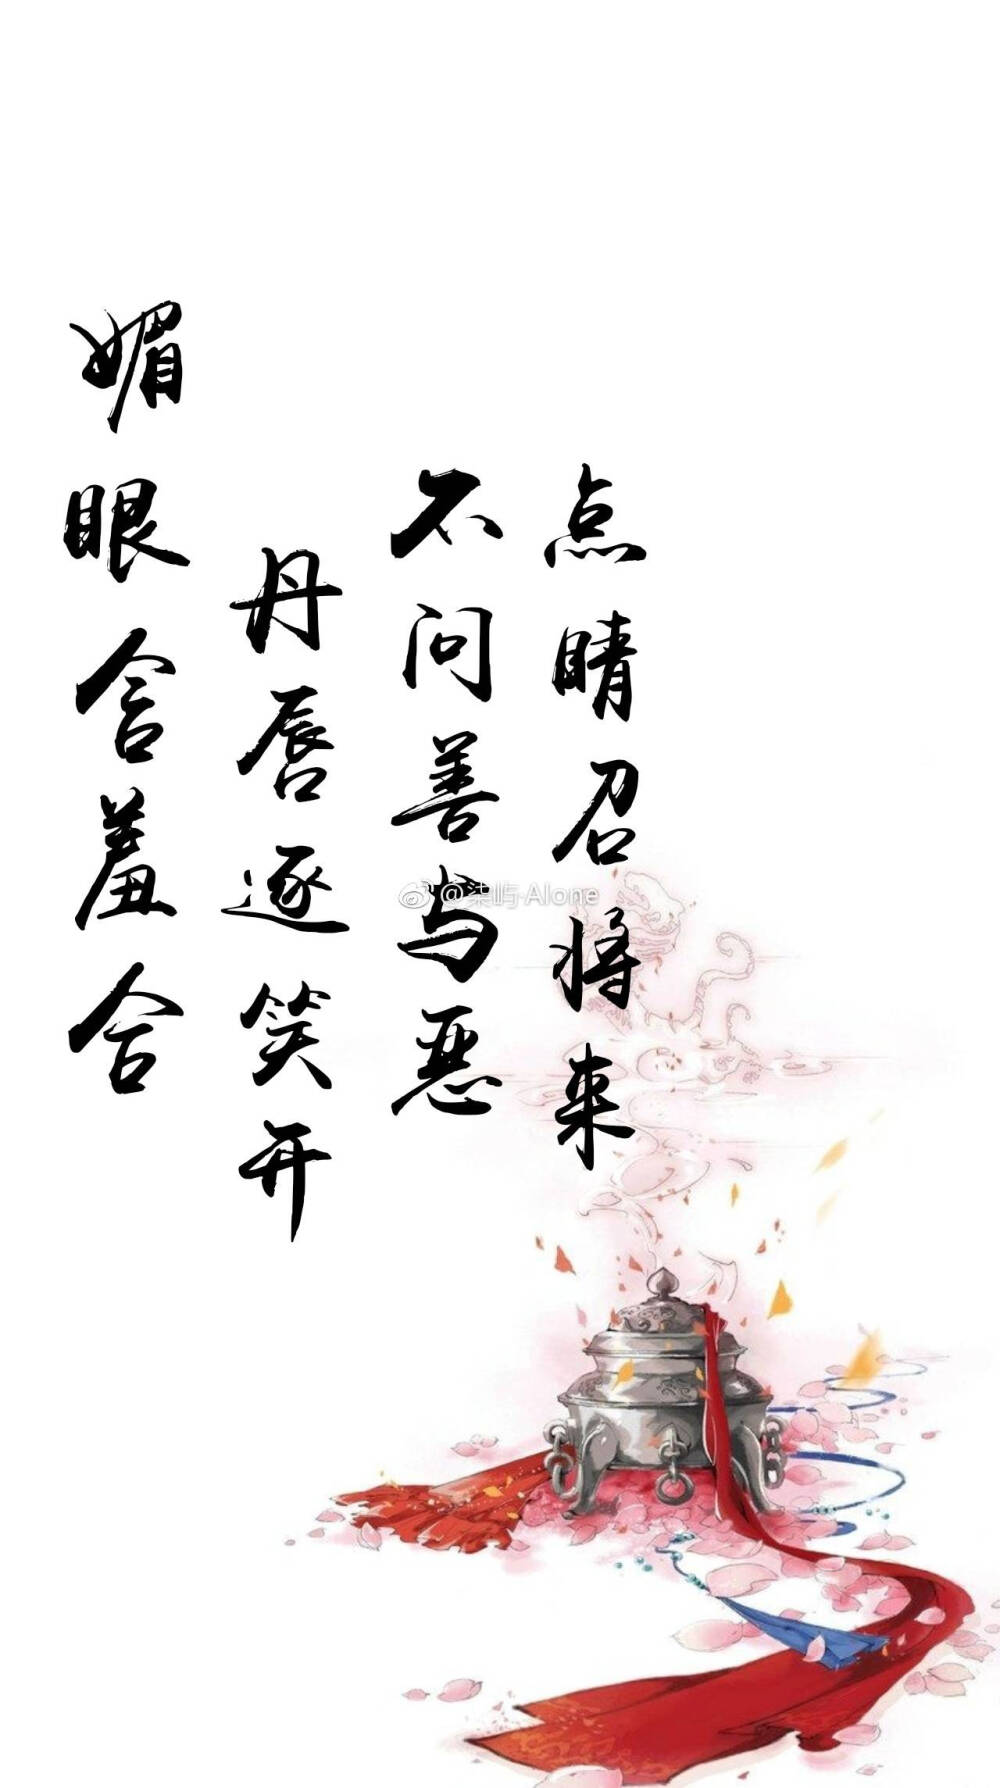 媚眼含羞合
丹唇逐笑开
不问善与恶
点睛召将来
@柒屿·Alone